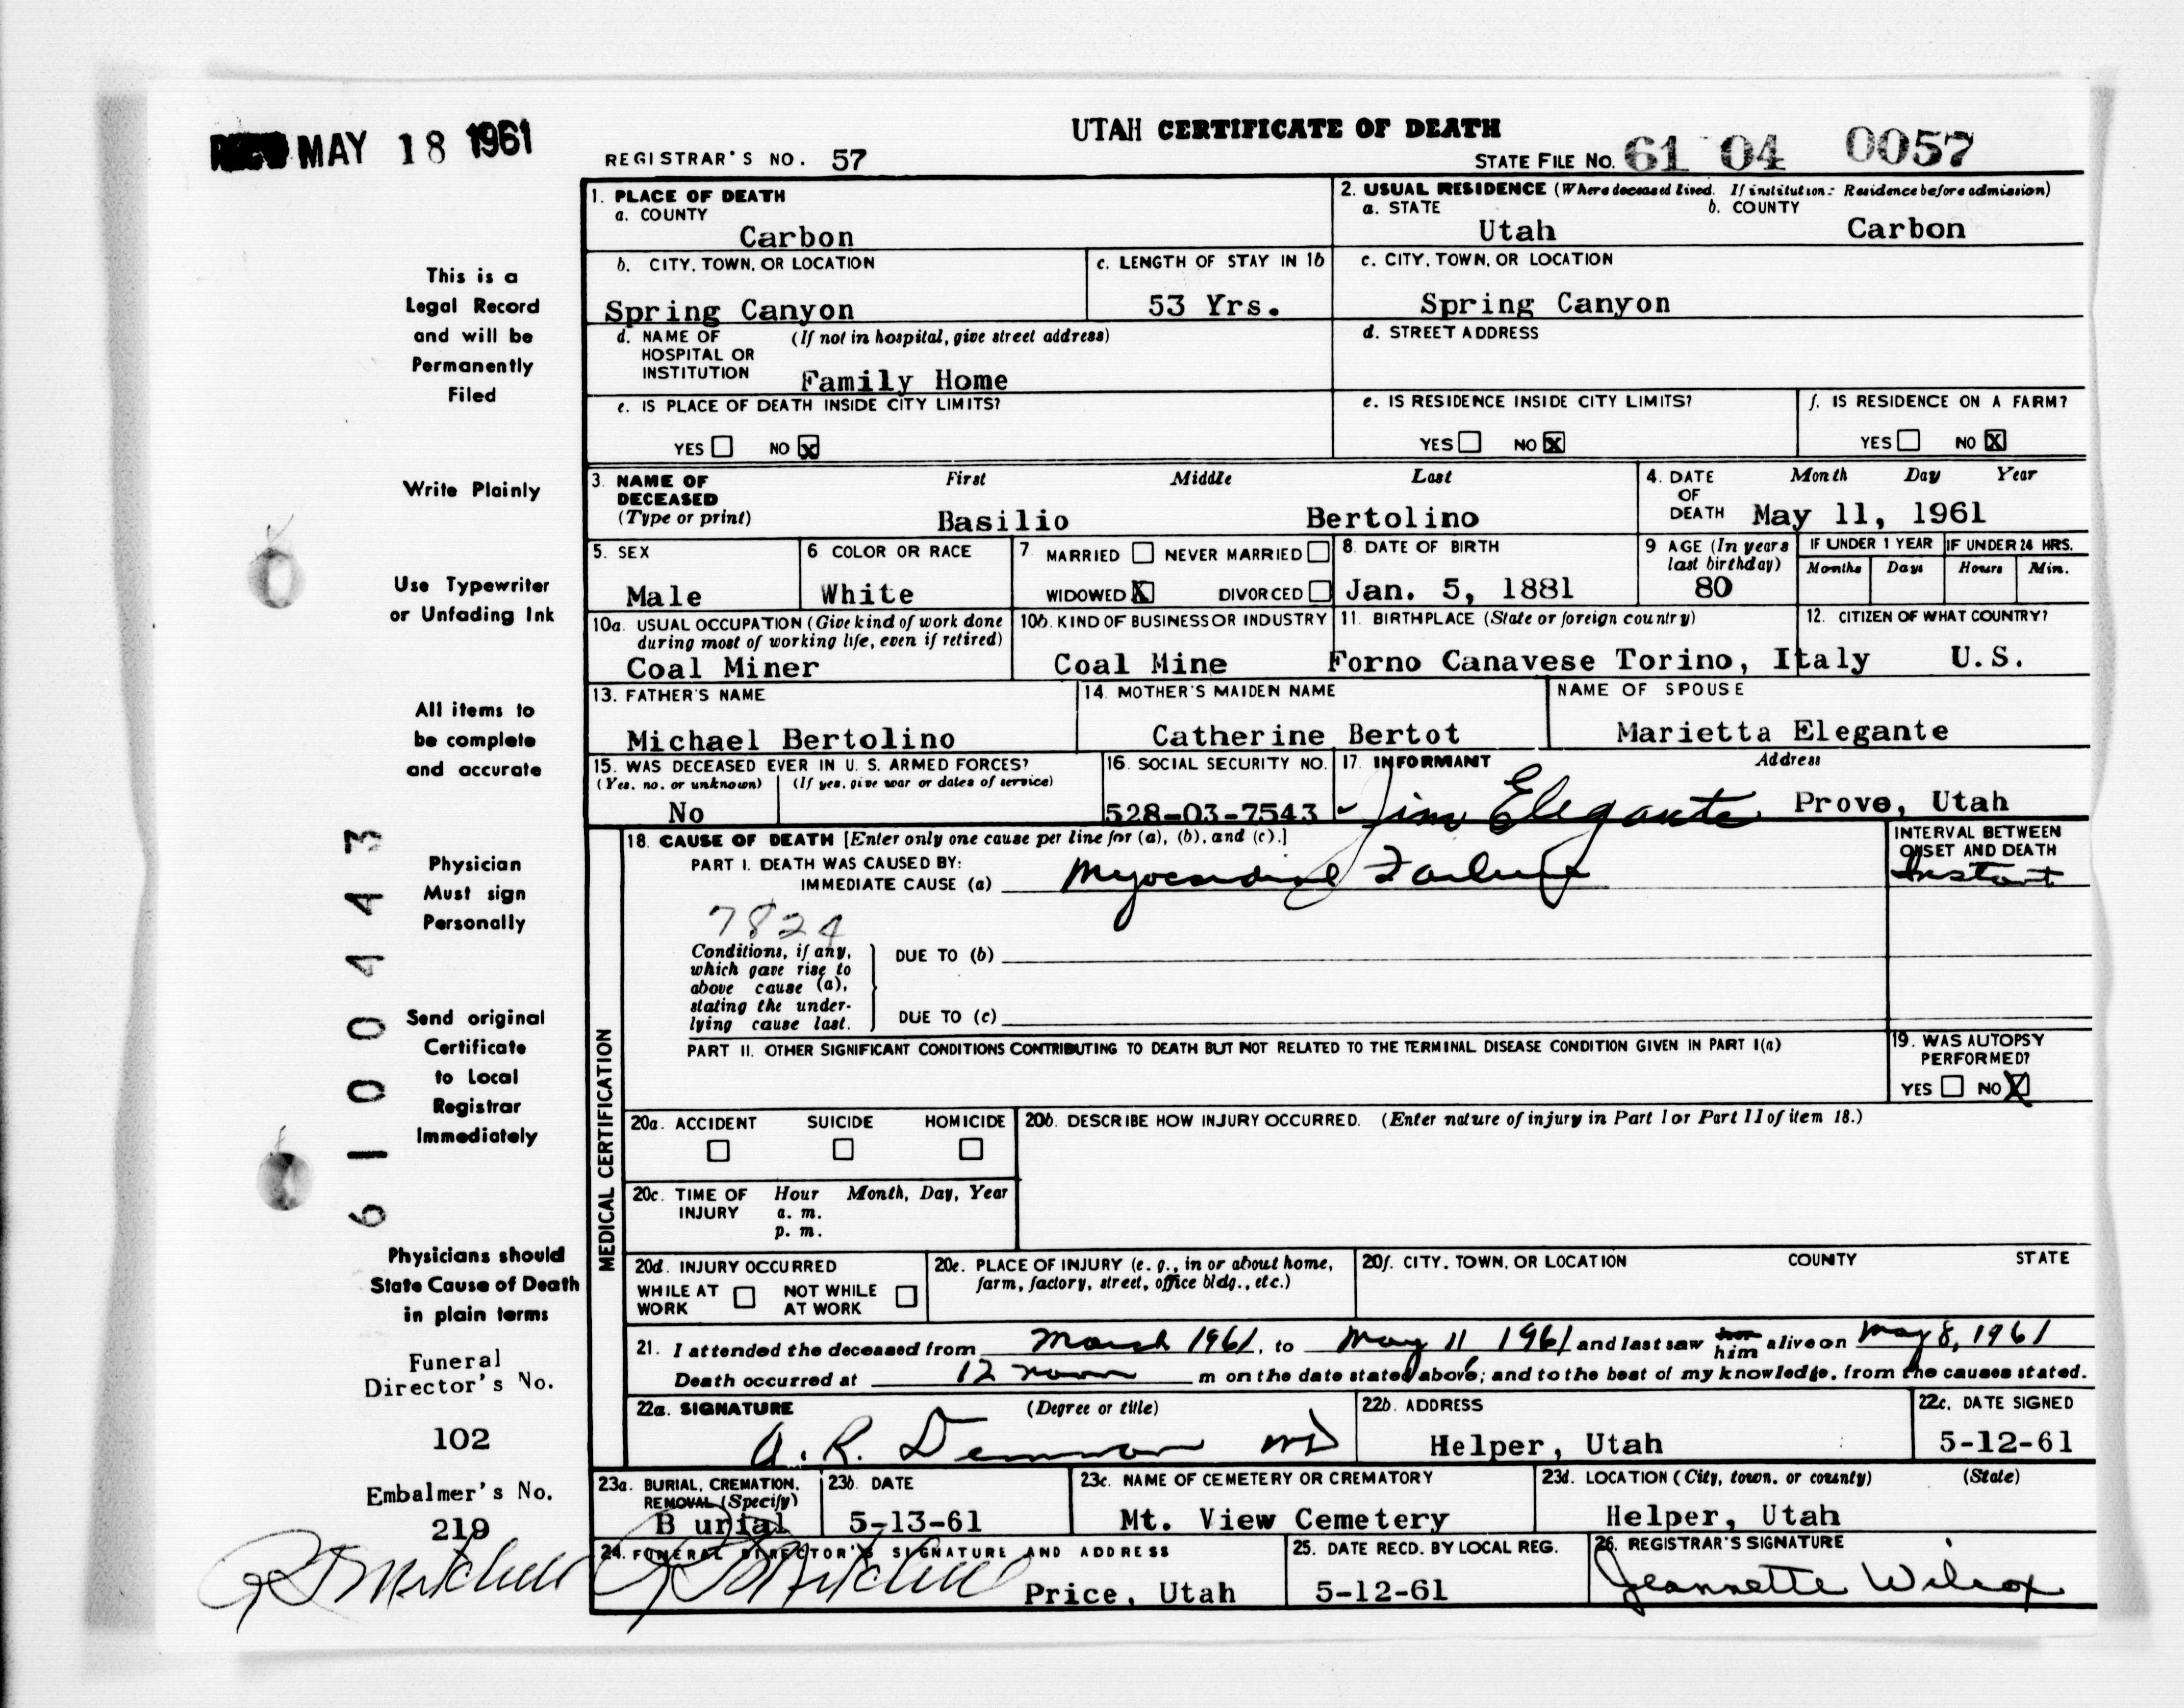 REC'D MAY 18 1961
UTAH CERTIFICATE OF DEATH
REGISTRAR'S NO. 57
STATE FILE NO. 61 04 0057
This is a
Legal Record
and will be
Permanently
Filed
Write Plainly
Use Typewriter
or Unfading Ink
All items to
be complete
and accurate
Physician
Must sign
Personally
Send original
Certificate
to Local
Registrar
Immediately
Physicians should
State Cause of Death
in plain terms
Funeral
Director's No.
102
Embalmer's No.
219
61 00443
1. PLACE OF DEATH
a. COUNTY
Carbon
2. USUAL RESIDENCE (Where deceased lived. If institution: Residence before admission)
a. STATE b. COUNTY
Utah Carbon
b. CITY, TOWN, OR LOCATION
Spring Canyon
c. LENGTH OF STAY IN 1b
53 Yrs.
c. CITY, TOWN, OR LOCATION
Spring Canyon
d. NAME OF (If not in hospital, give street address)
HOSPITAL OR
INSTITUTION Family Home
d. STREET ADDRESS
e. IS PLACE OF DEATH INSIDE CITY LIMITS?
YES NO X
e. IS RESIDENCE INSIDE CITY LIMITS?
YES NO X
f. IS RESIDENCE ON A FARM?
YES NO X
3. NAME OF First Middle Last
DECEASED
(Type or print) Basilio Bertolino
4. DATE Month Day Year
OF
DEATH May 11, 1961
5. SEX
Male
6 COLOR OR RACE
White
7 MARRIED NEVER MARRIED
WIDOWED X DIVORCED
8. DATE OF BIRTH
Jan. 5, 1881
9 AGE (In years
last birthday)
80
IF UNDER 1 YEAR IF UNDER 24 HRS.
Months Days Hours Min.
10a. USUAL OCCUPATION (Give kind of work done
during most of working life, even if retired)
Coal Miner
10b. KIND OF BUSINESS OR INDUSTRY
Coal Mine
11. BIRTHPLACE (State or foreign country)
Forno Canavese Torino, Italy
12. CITIZEN OF WHAT COUNTRY?
U.S.
13. FATHER'S NAME
Michael Bertolino
14. MOTHER'S MAIDEN NAME
Catherine Bertot
NAME OF SPOUSE
Marietta Elegante
15. WAS DECEASED EVER IN U. S. ARMED FORCES?
(Yes, no, or unknown) (If yes, give war or dates of service)
No
16. SOCIAL SECURITY NO.
528-03-7543
17. INFORMANT Address
Jim Elegante Provo, Utah
MEDICAL CERTIFICATION
18. CAUSE OF DEATH [Enter only one cause per line for (a), (b), and (c).]
PART I. DEATH WAS CAUSED BY:
IMMEDIATE CAUSE (a) Myocardial Failure
INTERVAL BETWEEN
ONSET AND DEATH
Instant
7824
Conditions, if any,
which gave rise to
above cause (a),
stating the under-
lying cause last.
DUE TO (b)
DUE TO (c)
PART II. OTHER SIGNIFICANT CONDITIONS CONTRIBUTING TO DEATH BUT NOT RELATED TO THE TERMINAL DISEASE CONDITION GIVEN IN PART I(a)
19. WAS AUTOPSY
PERFORMED?
YES NO X
20a. ACCIDENT SUICIDE HOMICIDE
20b. DESCRIBE HOW INJURY OCCURRED. (Enter nature of injury in Part I or Part II of item 18.)
20c. TIME OF Hour Month, Day, Year
INJURY a. m.
p. m.
20d. INJURY OCCURRED
WHILE AT NOT WHILE
WORK AT WORK
20e. PLACE OF INJURY (e. g., in or about home,
farm, factory, street, office bldg., etc.)
20f. CITY, TOWN, OR LOCATION COUNTY STATE
21. I attended the deceased from March 1961, to May 11 1961 and last saw her him alive on May 8, 1961
Death occurred at 12 noon m on the date stated above; and to the best of my knowledge, from the causes stated.
22a. SIGNATURE (Degree or title)
A. R. Demman MD
22b. ADDRESS
Helper, Utah
22c. DATE SIGNED
5-12-61
23a. BURIAL, CREMATION,
REMOVAL (Specify)
B urial
23b. DATE
5-13-61
23c. NAME OF CEMETERY OR CREMATORY
Mt. View Cemetery
23d. LOCATION (City, town, or county) (State)
Helper, Utah
24. FUNERAL DIRECTOR'S SIGNATURE AND ADDRESS
Mitchell Mitchell Price, Utah
25. DATE RECD. BY LOCAL REG.
5-12-61
26. REGISTRAR'S SIGNATURE
Jeannette Wilcox